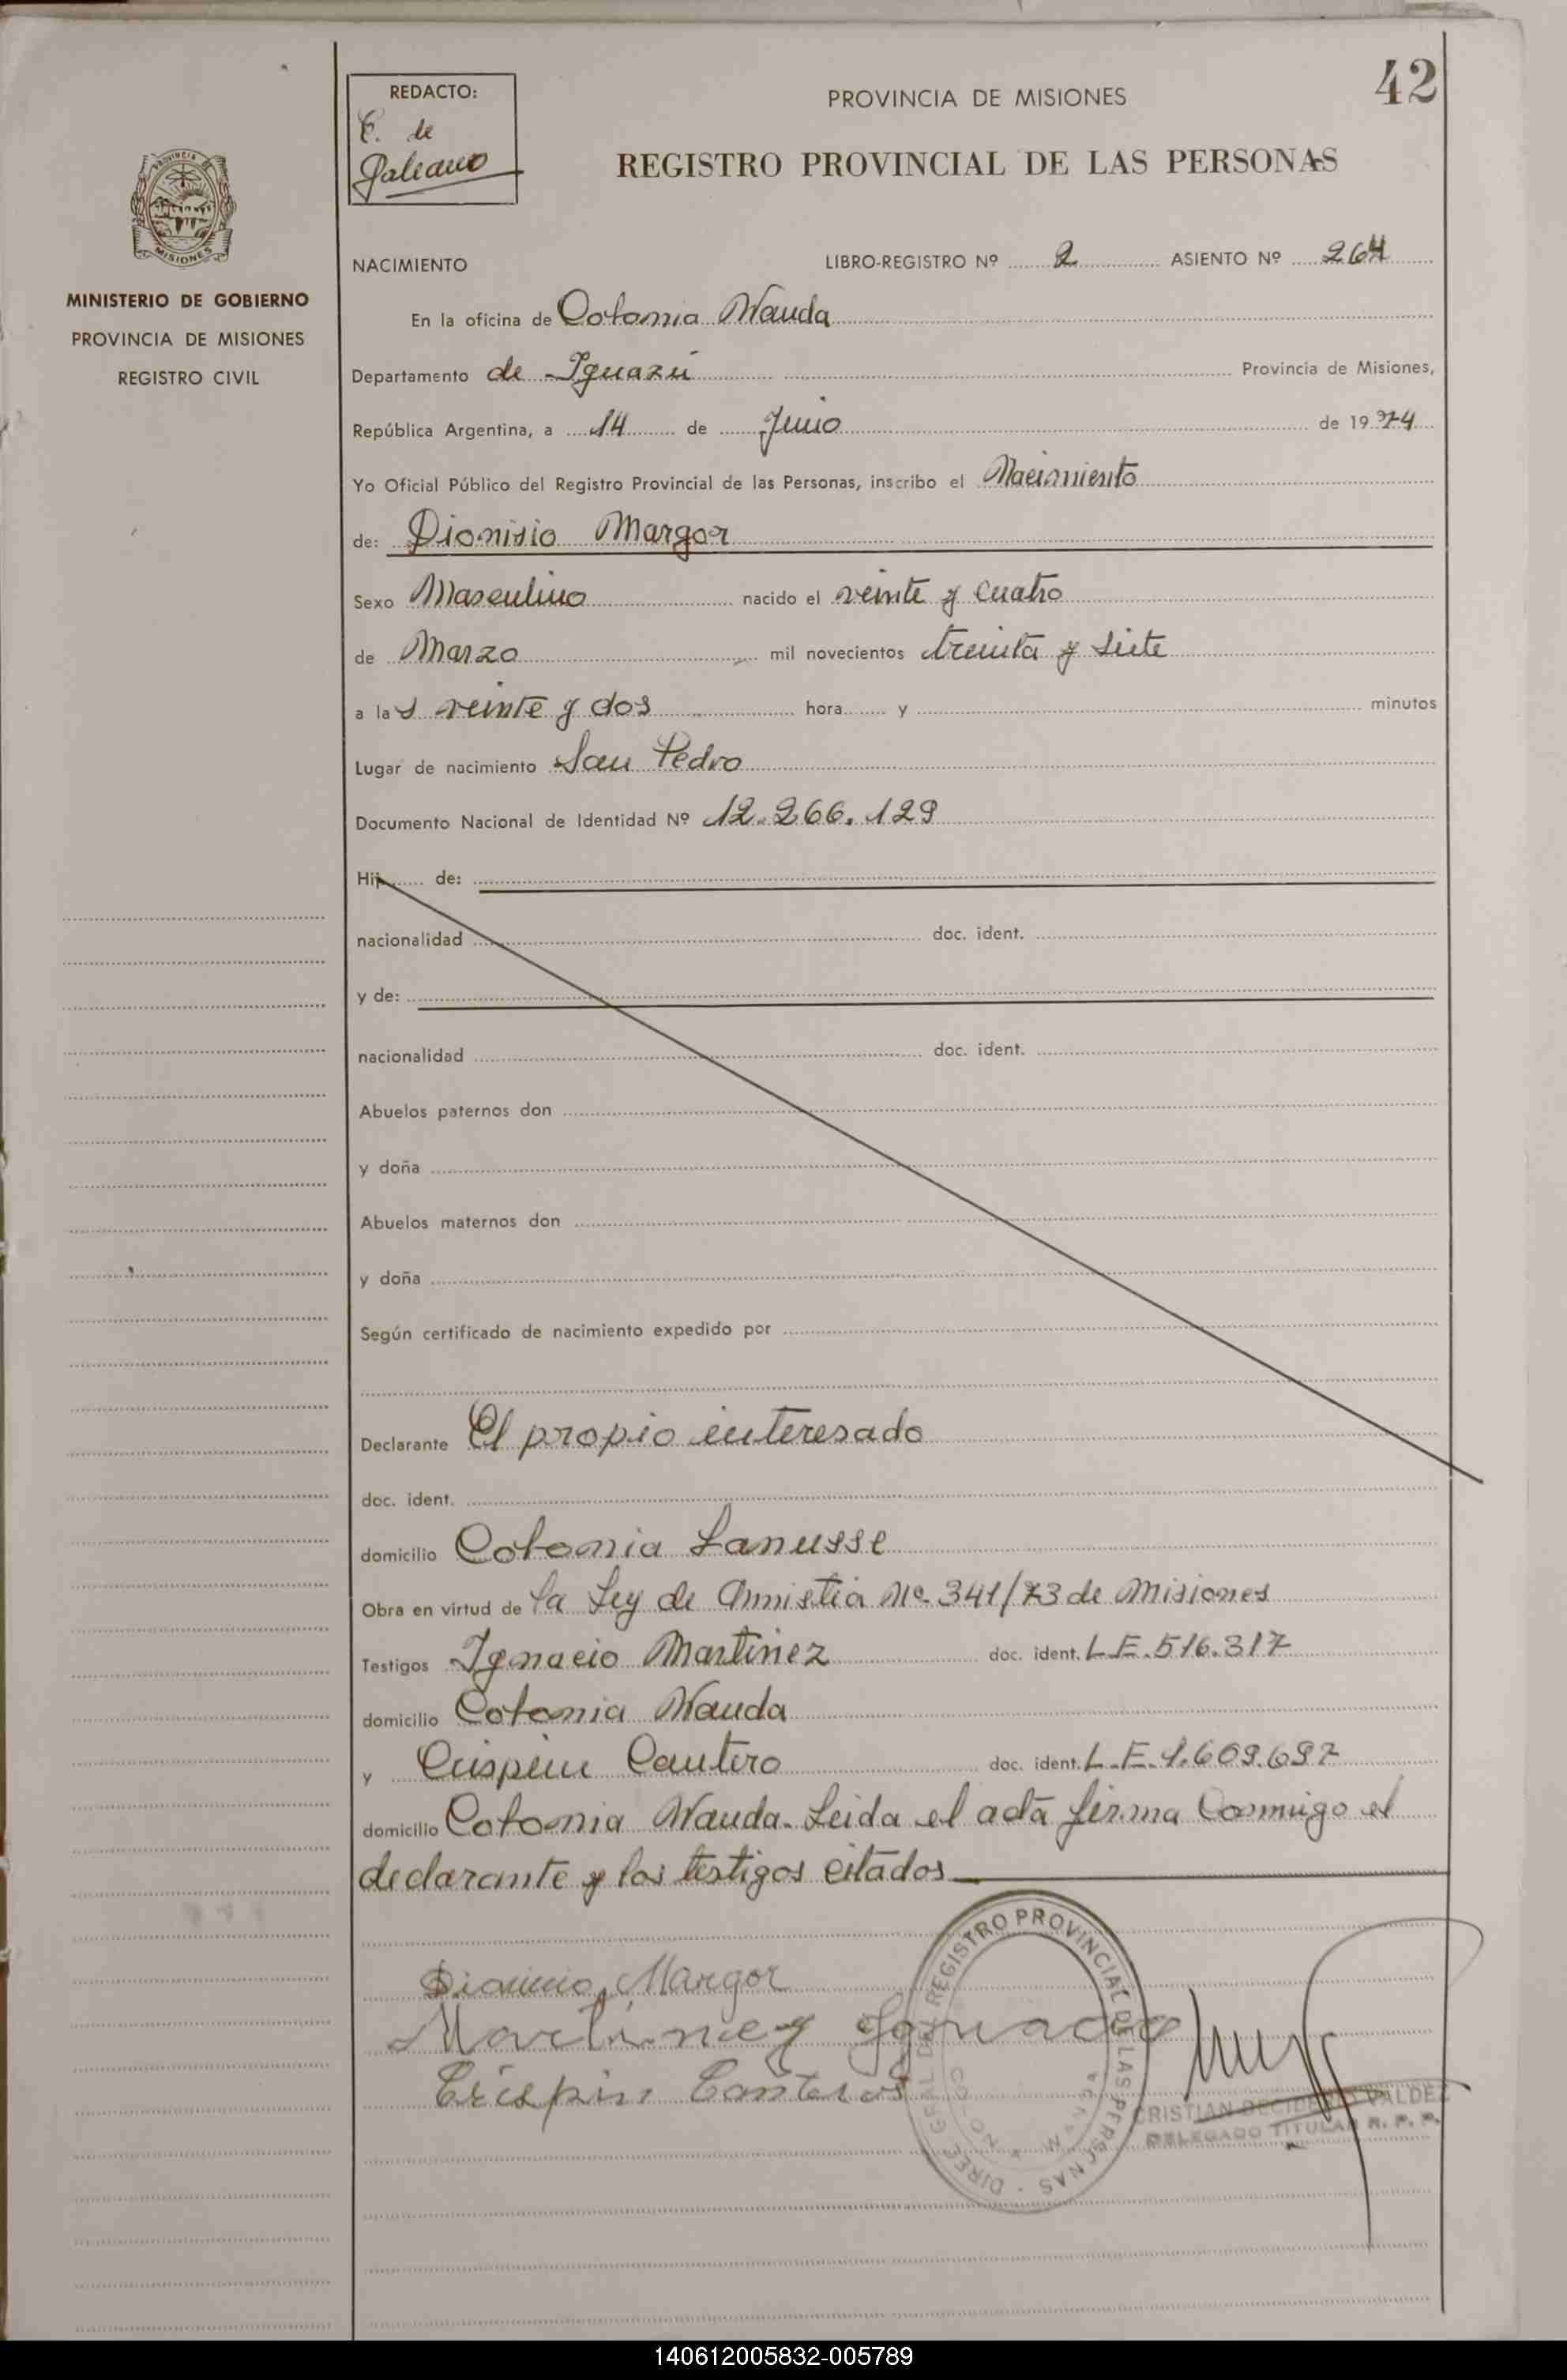 42
REDACTO:
E. de
Galeano
PROVINCIA DE MISIONES
REGISTRO PROVINCIAL DE LAS PERSONAS
PROVINCIA DE
MISIONES
MINISTERIO DE GOBIERNO
PROVINCIA DE MISIONES
REGISTRO CIVIL
NACIMIENTO LIBRO-REGISTRO Nº 2 ASIENTO Nº 264
En la oficina de Colonia Wanda
Departamento de Iguazú Provincia de Misiones,
República Argentina, a 14 de Junio de 1974
Yo Oficial Público del Registro Provincial de las Personas, inscribo el Nacimiento
de: Dionisio Margor
Sexo Masculino nacido el veinte y cuatro
de Marzo mil novecientos treinta y siete
a las veinte y dos hora y minutos
Lugar de nacimiento San Pedro
Documento Nacional de Identidad Nº 12.266.129
Hij de:
nacionalidad doc. ident.
y de:
nacionalidad doc. ident.
Abuelos paternos don
y doña
Abuelos maternos don
y doña
Según certificado de nacimiento expedido por
Declarante El propio interesado
doc. ident.
domicilio Colonia Lanusse
Obra en virtud de la Ley de Amnistia Nº 341/73 de Misiones
Testigos Ignacio Martinez doc. ident. L.E. 516.317
domicilio Colonia Wanda
y Crispin Cantero doc. ident. L.E. 1.609.697
domicilio Colonia Wanda. Leida el acta firma conmigo el
declarante y los testigos citados
Dionicio Margor
Martinez Ygnacio
Crispin Canteros
DIREC. GRAL DEL REGISTRO PROVINCIAL DE LAS PERSONAS
WANDA
CRISTIAN DECIDERIO VALDEZ
DELEGADO TITULAR R. P. P.
140612005832-005789